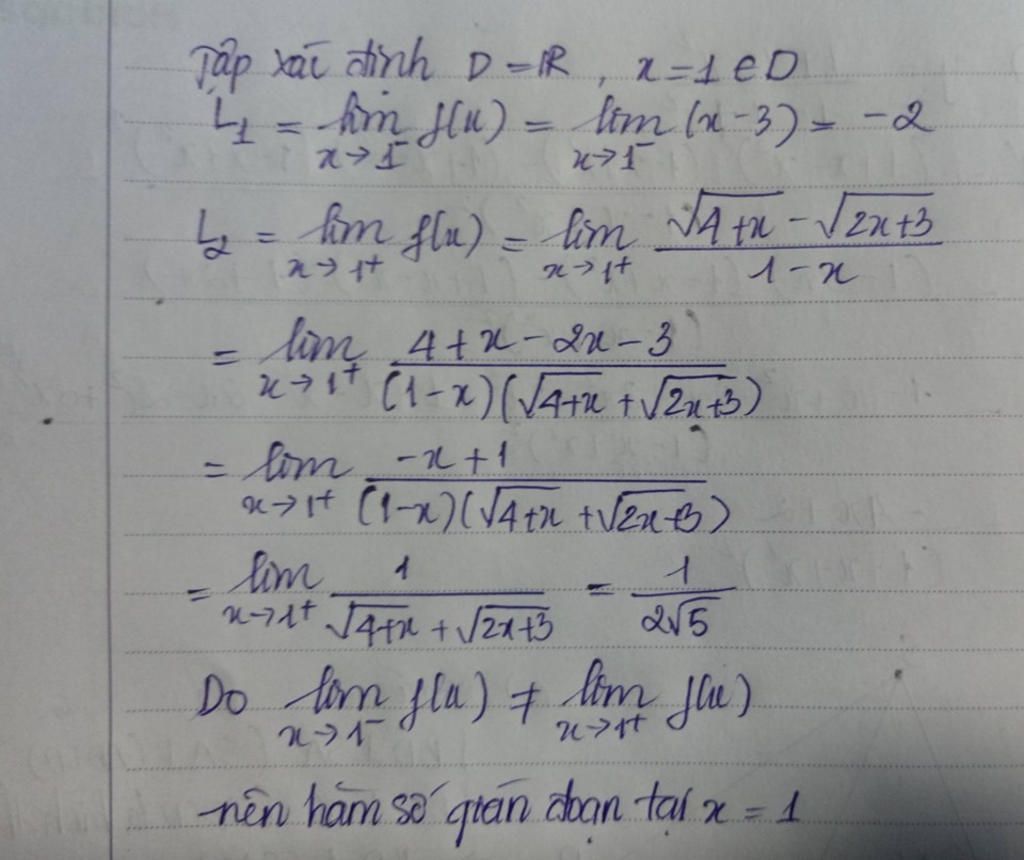 Tập xác định D = ℝ, x = 1 ∈ D
L₁ = lim_{x→1⁻} f(x) = lim_{x→1⁻} (x - 3) = -2
L₂ = lim_{x→1⁺} f(x) = lim_{x→1⁺} (√(4+x) - √(2x+3))/(1-x)
= lim_{x→1⁺} (4+x-2x-3)/((1-x)(√(4+x)+√(2x+3)))
= lim_{x→1⁺} (-x+1)/((1-x)(√(4+x)+√(2x+3)))
= lim_{x→1⁺} 1/(√(4+x)+√(2x+3)) = 1/(2√5)
Do lim_{x→1⁻} f(x) ≠ lim_{x→1⁺} f(x)
nên hàm số gián đoạn tại x = 1